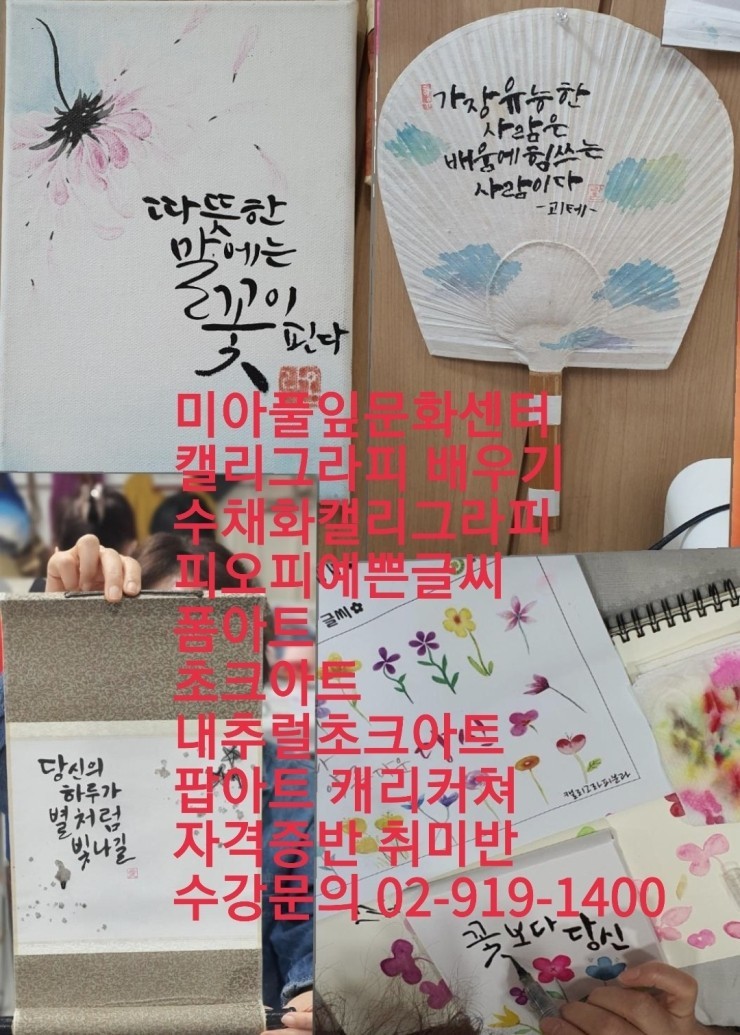 따뜻한
말에는
꽃이
핀다
가장 유능한
사람은
배움에 힘쓰는
사람이다
-괴테-
미아풀잎문화센터
캘리그라피 배우기
수채화캘리그라피
피오피예쁜글씨
폼아트
초크아트
내추럴초크아트
팝아트 캐리커쳐
자격증반 취미반
수강문의 02-919-1400
당신의
하루가
별처럼
빛나길
글씨✿
캘리그라피봄라
꽃보다 당신